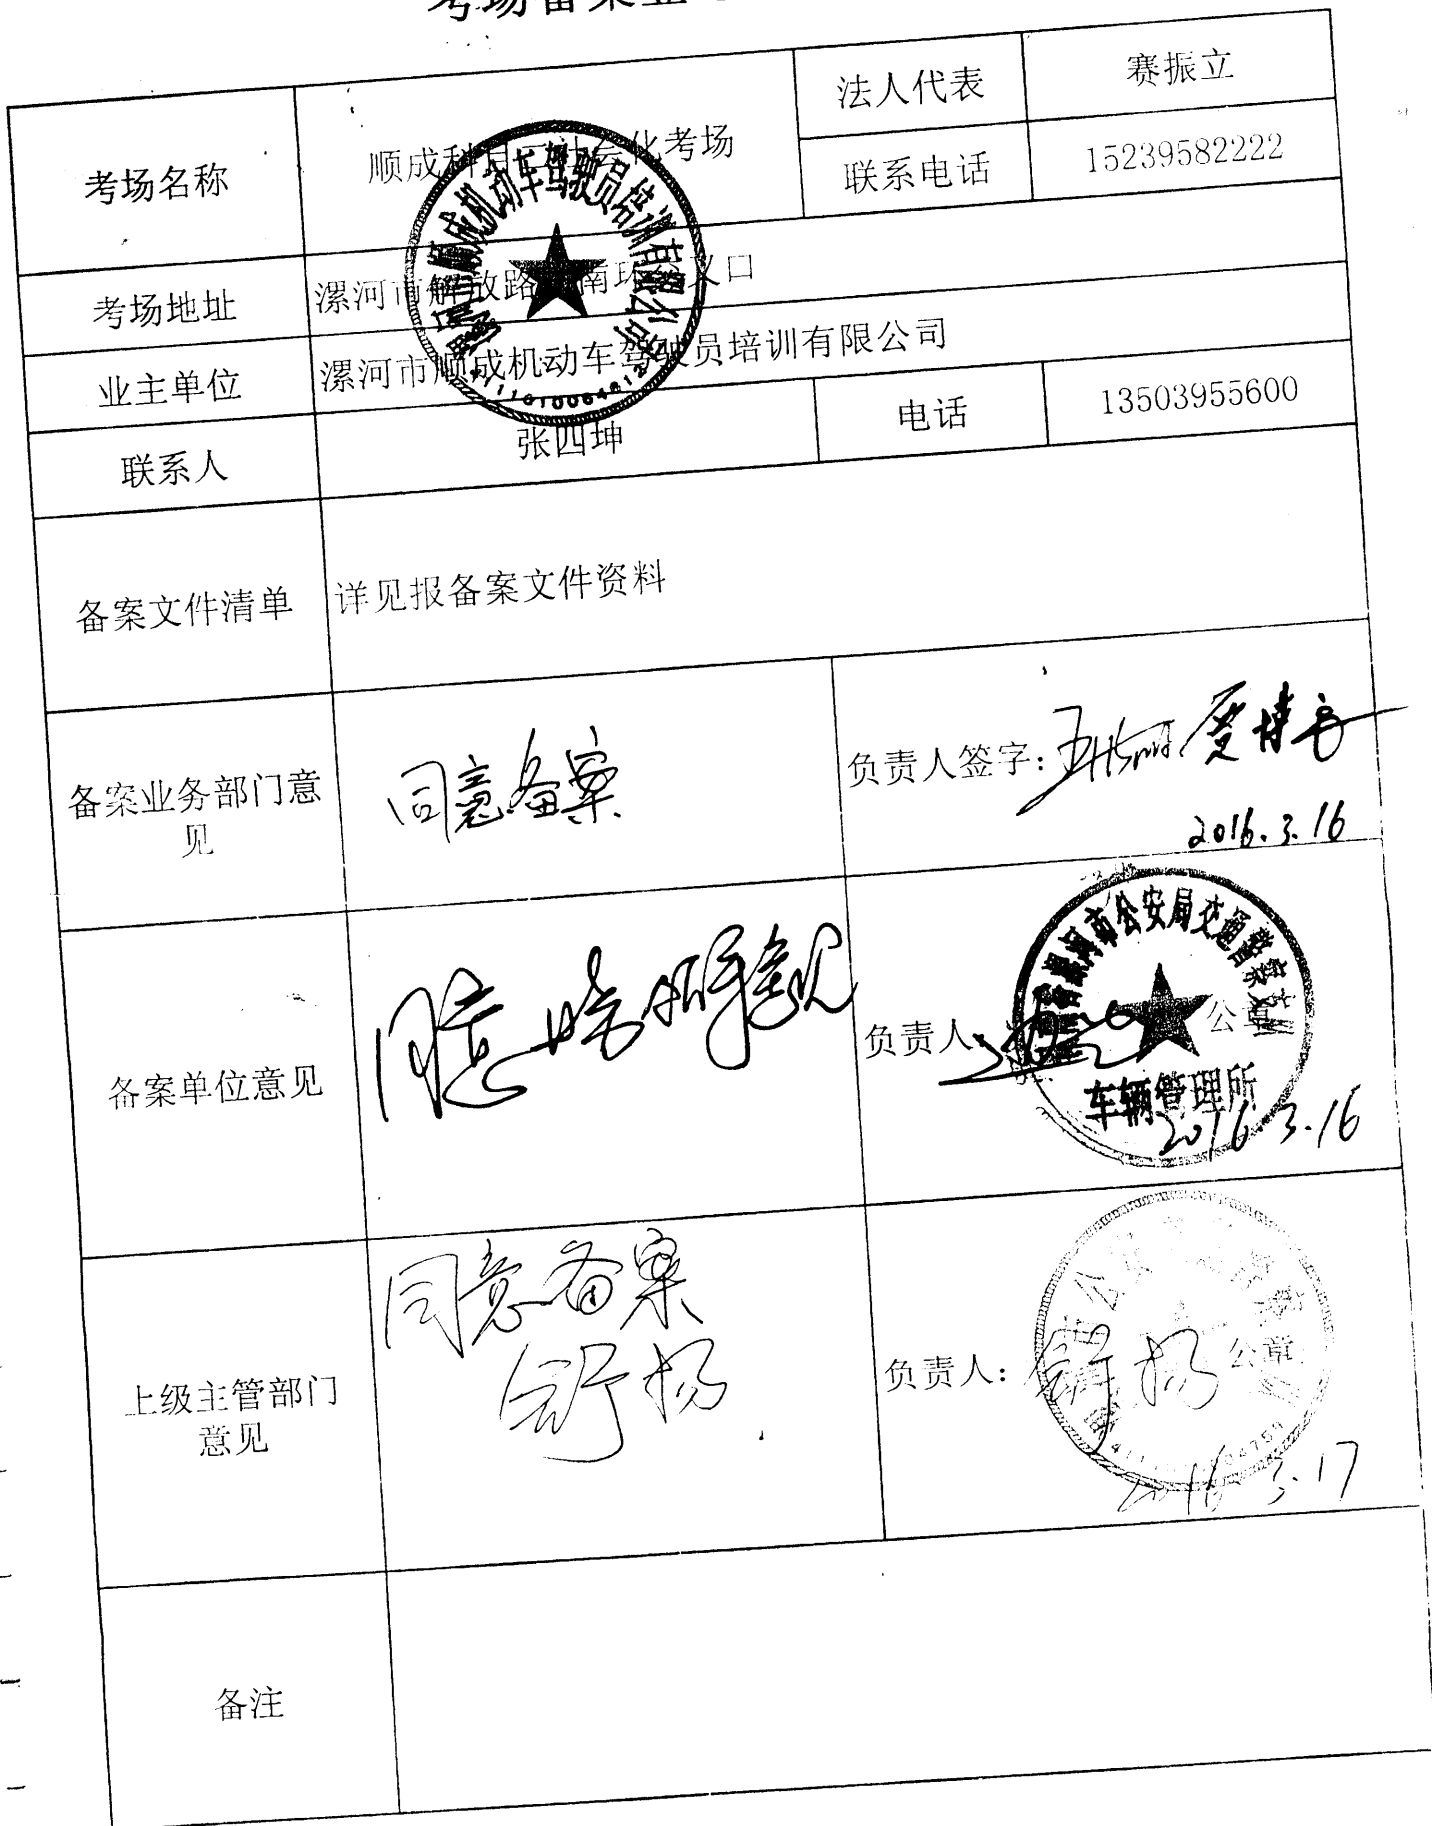 考场备案业
考场名称
顺成科目三社会化考场
法人代表
赛振立
联系电话
15239582222
考场地址
漯河市解放路 南环交叉口
业主单位
漯河市顺成机动车驾驶员培训有限公司
联系人
张四坤
电话
13503955600
备案文件清单
详见报备案文件资料
备案业务部门意
见
同意备案
负责人签字:
2016.3.16
备案单位意见
同意
负责人:
公章
漯河市公安局交通警察支队
车辆管理所
2016.3.16
上级主管部门
意见
同意备案
舒扬
负责人:
舒扬
公章
2016.3.17
备注